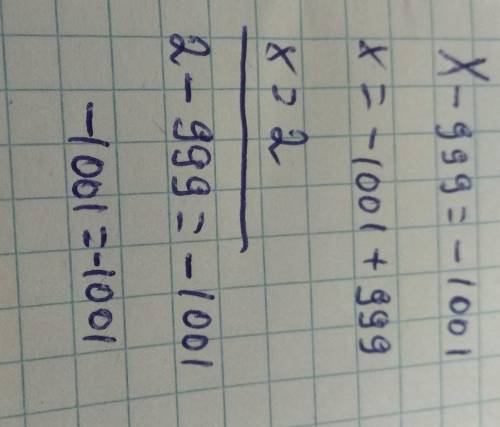 x - 999 = - 1001
x = - 1001 + 999
x = 2
2 - 999 = - 1001
- 1001 = -1001